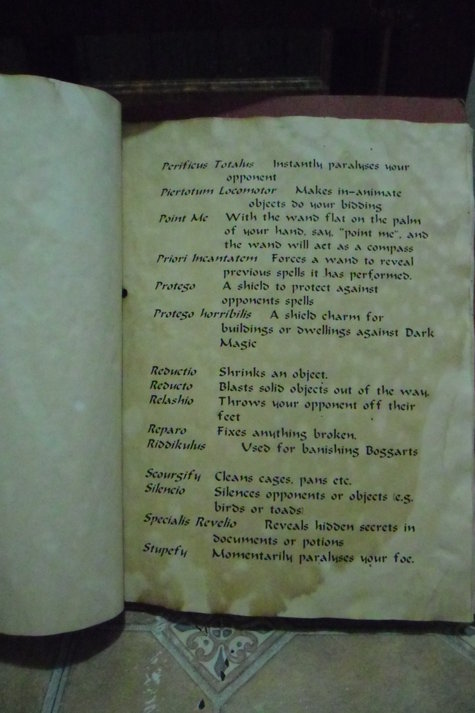 Perificus Totalus Instantly paralyses your
opponent
Piertotum Locomotor Makes in-animate
objects do your bidding
Point Me With the wand flat on the palm
of your hand, say, "point me", and
the wand will act as a compass
Priori Incantatem Forces a wand to reveal
previous spells it has performed.
Protego A shield to protect against
opponents spells
Protego horribilis A shield charm for
buildings or dwellings against Dark
Magic
Reductio Shrinks an object.
Reducto Blasts solid objects out of the way.
Relashio Throws your opponent off their
feet
Reparo Fixes anything broken.
Riddikulus Used for banishing Boggarts
Scourgify Cleans cages, pans etc.
Silencio Silences opponents or objects (e.g.
birds or toads)
Specialis Revelio Reveals hidden secrets in
documents or potions
Stupefy Momentarily paralyses your foe.